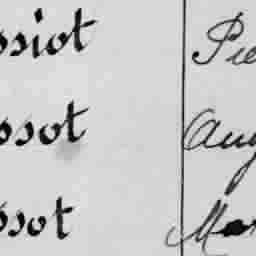 ssiot Pie
ssot Aug
ssot Mar